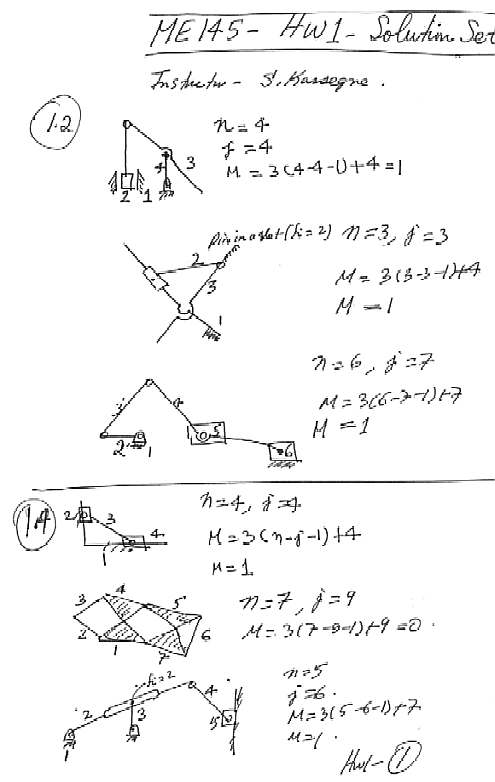 ME145 - HW1 - Solution Set
Instructor - S. Kassegne.
1.2
n = 4
j = 4
M = 3(4-4-1)+4 = 1
4
3
2
1
pin in a slot (fi = 2)
n = 3, j = 3
2
3
1
M = 3(3-3-1)+4
M = 1
n = 6, j = 7
M = 3(6-7-1)+7
M = 1
3
4
2
1
1
5
6
1.4
n = 4, j = 4
M = 3(n-j-1)+4
M = 1
2
3
4
1
n = 7, j = 9
M = 3(7-9-1)+9 = 0.
3
4
5
2
1
6
7
n = 5
j = 6.
M = 3(5-6-1)+7
M = 1.
fi = 2
2
3
4
5
1
HW1 - 1